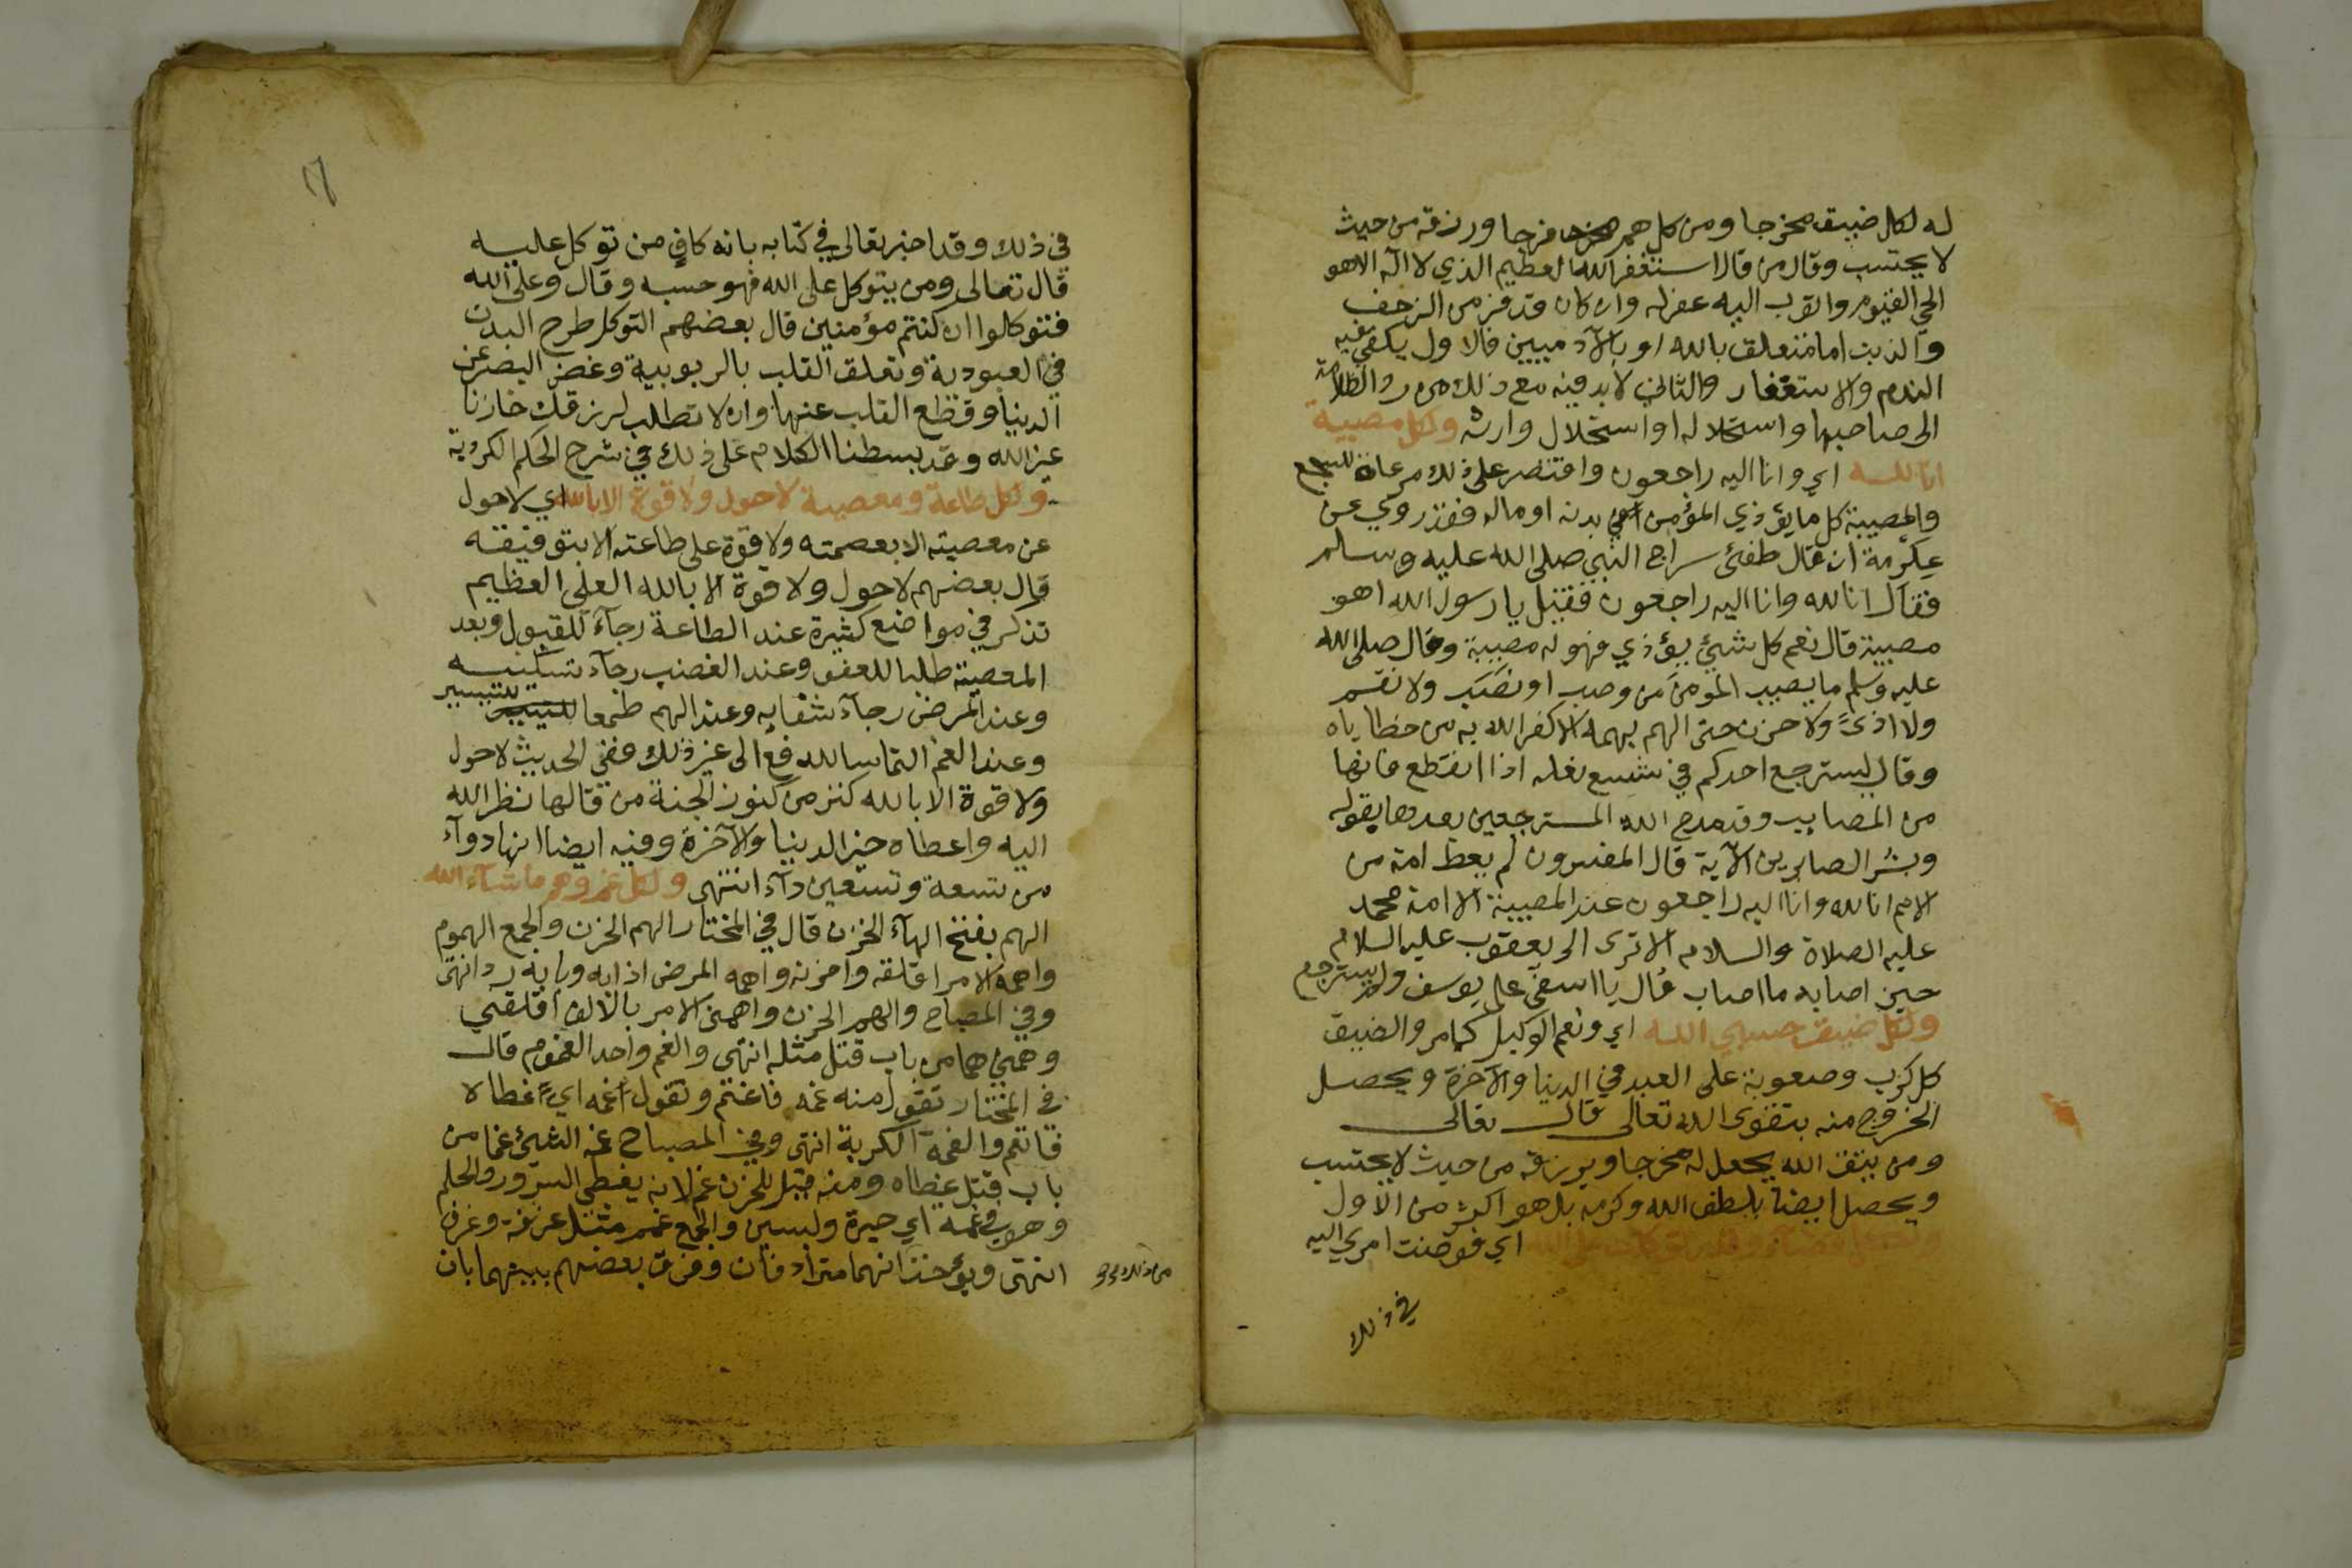 له لكل ضيق مخرجا ومن كل هم فرجا ورزقه من حيث
لا يحتسب وقال من قال استغفر الله العظيم الذي لا اله الا هو
الحي القيوم واتوب اليه غفر له وان كان قد فر من الزحف
والذنب اما متعلق بالله او بالآدميين فالاول يكفي فيه
الندم والاستغفار والثاني لا بد فيه مع ذلك من رد الظلامة
الى صاحبها واستحلاله او استحلال وارثه ولكل مصيبة
انا لله اي وانا اليه راجعون واقتصر على ذلك مرعاة للسجع
والمصيبة كل ما يؤذي المؤمن في بدنه او ماله فقد روي عن
عكرمة انه قال طفئ سراج النبي صلى الله عليه وسلم
فقال انا لله وانا اليه راجعون فقيل يا رسول الله اهو
مصيبة قال نعم كل شيئ يؤذي فهو له مصيبة وقال صلى الله
عليه وسلم ما يصيب المؤمن من وصب او نصب ولا نقم
ولا اذى ولا حزن حتى الهم يهمه الا كفر الله به من خطاياه
وقال ليسترجع احدكم في شسع نعله اذا انقطع فانها
من المصايب وقد مدح الله المسترجعين بعدها بقوله
وبشر الصابرين الآية قال المفسرون لم يعط امة من
الامم انا لله وانا اليه راجعون عند المصيبة الا امة محمد
عليه الصلاة والسلام الا ترى الى يعقوب عليه السلام
حين اصابه ما اصاب قال يا اسفى على يوسف ولم يسترجع
ولكل ضيق حسبي الله اي ونعم الوكيل كما مر والضيق
كل كرب وصعوبة على العبد في الدنيا والآخرة ويحصل
الخروج منه بتقوى الله تعالى قال تعالى
ومن يتق الله يجعل له مخرجا ويرزقه من حيث لا يحتسب
ويحصل ايضا بلطف الله وكرمه بل هو اكثر من الاول
ولكل قضاء وقدر توكلت على الله اي فوضت امري اليه
في ذلك
١٦
في ذلك وقد اخبر تعالى في كتابه بانه كافٍ من توكل عليه
قال تعالى ومن يتوكل على الله فهو حسبه وقال وعلى الله
فتوكلوا ان كنتم مؤمنين قال بعضهم التوكل طرح البدن
في العبودية وتعلق القلب بالربوبية وغض البصر عن
الدنيا وقطع القلب عنها وان لا تطلب لرزقك خازنا
غير الله وقد بسطنا الكلام على ذلك في شرح الحكم الكردية
ولكل طاعة ومعصية لا حول ولا قوة الا بالله اي لا حول
عن معصيته الا بعصمته ولا قوة على طاعته الا بتوفيقه
قال بعضهم لا حول ولا قوة الا بالله العلي العظيم
تذكر في مواضع كثيرة عند الطاعة رجآء للقبول وبعد
المعصية طلبا للعفو وعند الغضب رجآء تسكينه
وعند المرض رجآء شفايه وعند الهم طمعا للتيسير
وعند الغم التماسا للدفع الى غير ذلك ففي الحديث لا حول
ولا قوة الا بالله كنز من كنوز الجنة من قالها نظر الله
اليه واعطاه خير الدنيا والآخرة وفيه ايضا انها دوآء
من تسعة وتسعين دآء انتهى ولكل غم وهم ما شآء الله
الهم بفتح الهآء الحزن قال في المختار الهم الحزن والجمع الهموم
واهمه الامر اقلقه واحزنه واهمه المرض اذابه وبابه رد انتهى
وفي المصباح والهم الحزن واهمني الامر بالالف اقلقني
وهمني هما من باب قتل مثله انتهى والغم واحد الغموم قال
في المختار تقول منه غمه فاغتم وتقول غمه اي غطاه
فانغم والغمة الكربة انتهى وفي المصباح غم الشيئ غما من
باب قتل غطاه ومنه قيل للحزن غم لانه يغطي السرور والحلم
وهو في غمة اي حيرة ولبس والجمع غمم مثل غرفة وغرف
انتهى ويؤخذ انهما مترادفان وفرق بعضهم بينهما بان
من ذلك